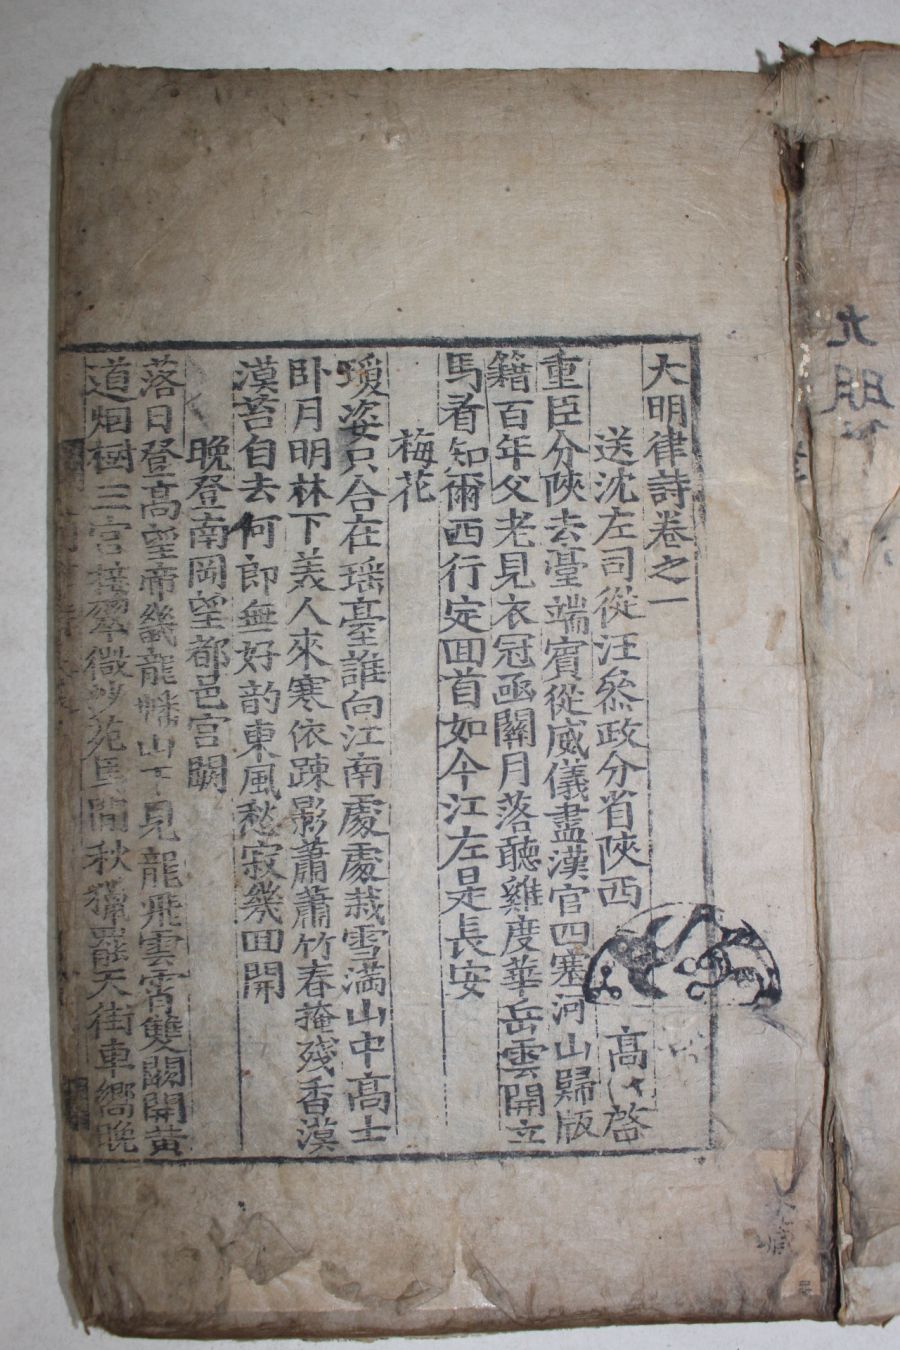 大明律詩卷之一
送沈左司從汪叅政分省陝西 高 啓
重臣分陝去臺端賓從威儀盡漢官四塞河山歸版
籍百年父老見衣冠函關月落聽雞度華岳雲開立
馬看知爾西行定回首如今江左是長安
梅花
瓊姿只合在瑶臺誰向江南處處栽雪满山中高士
卧月明林下美人來寒依踈影蕭蕭竹春掩殘香漠
漠苔自去何郎無好韵東風愁寂幾回開
晚登南岡望都邑宫闕
落日登高望帝畿龍蟠山下見龍飛雲霄雙闕開黄
道烟樹三宫接翠微沙苑馬閒秋獵罷天街車嚮晚
大明